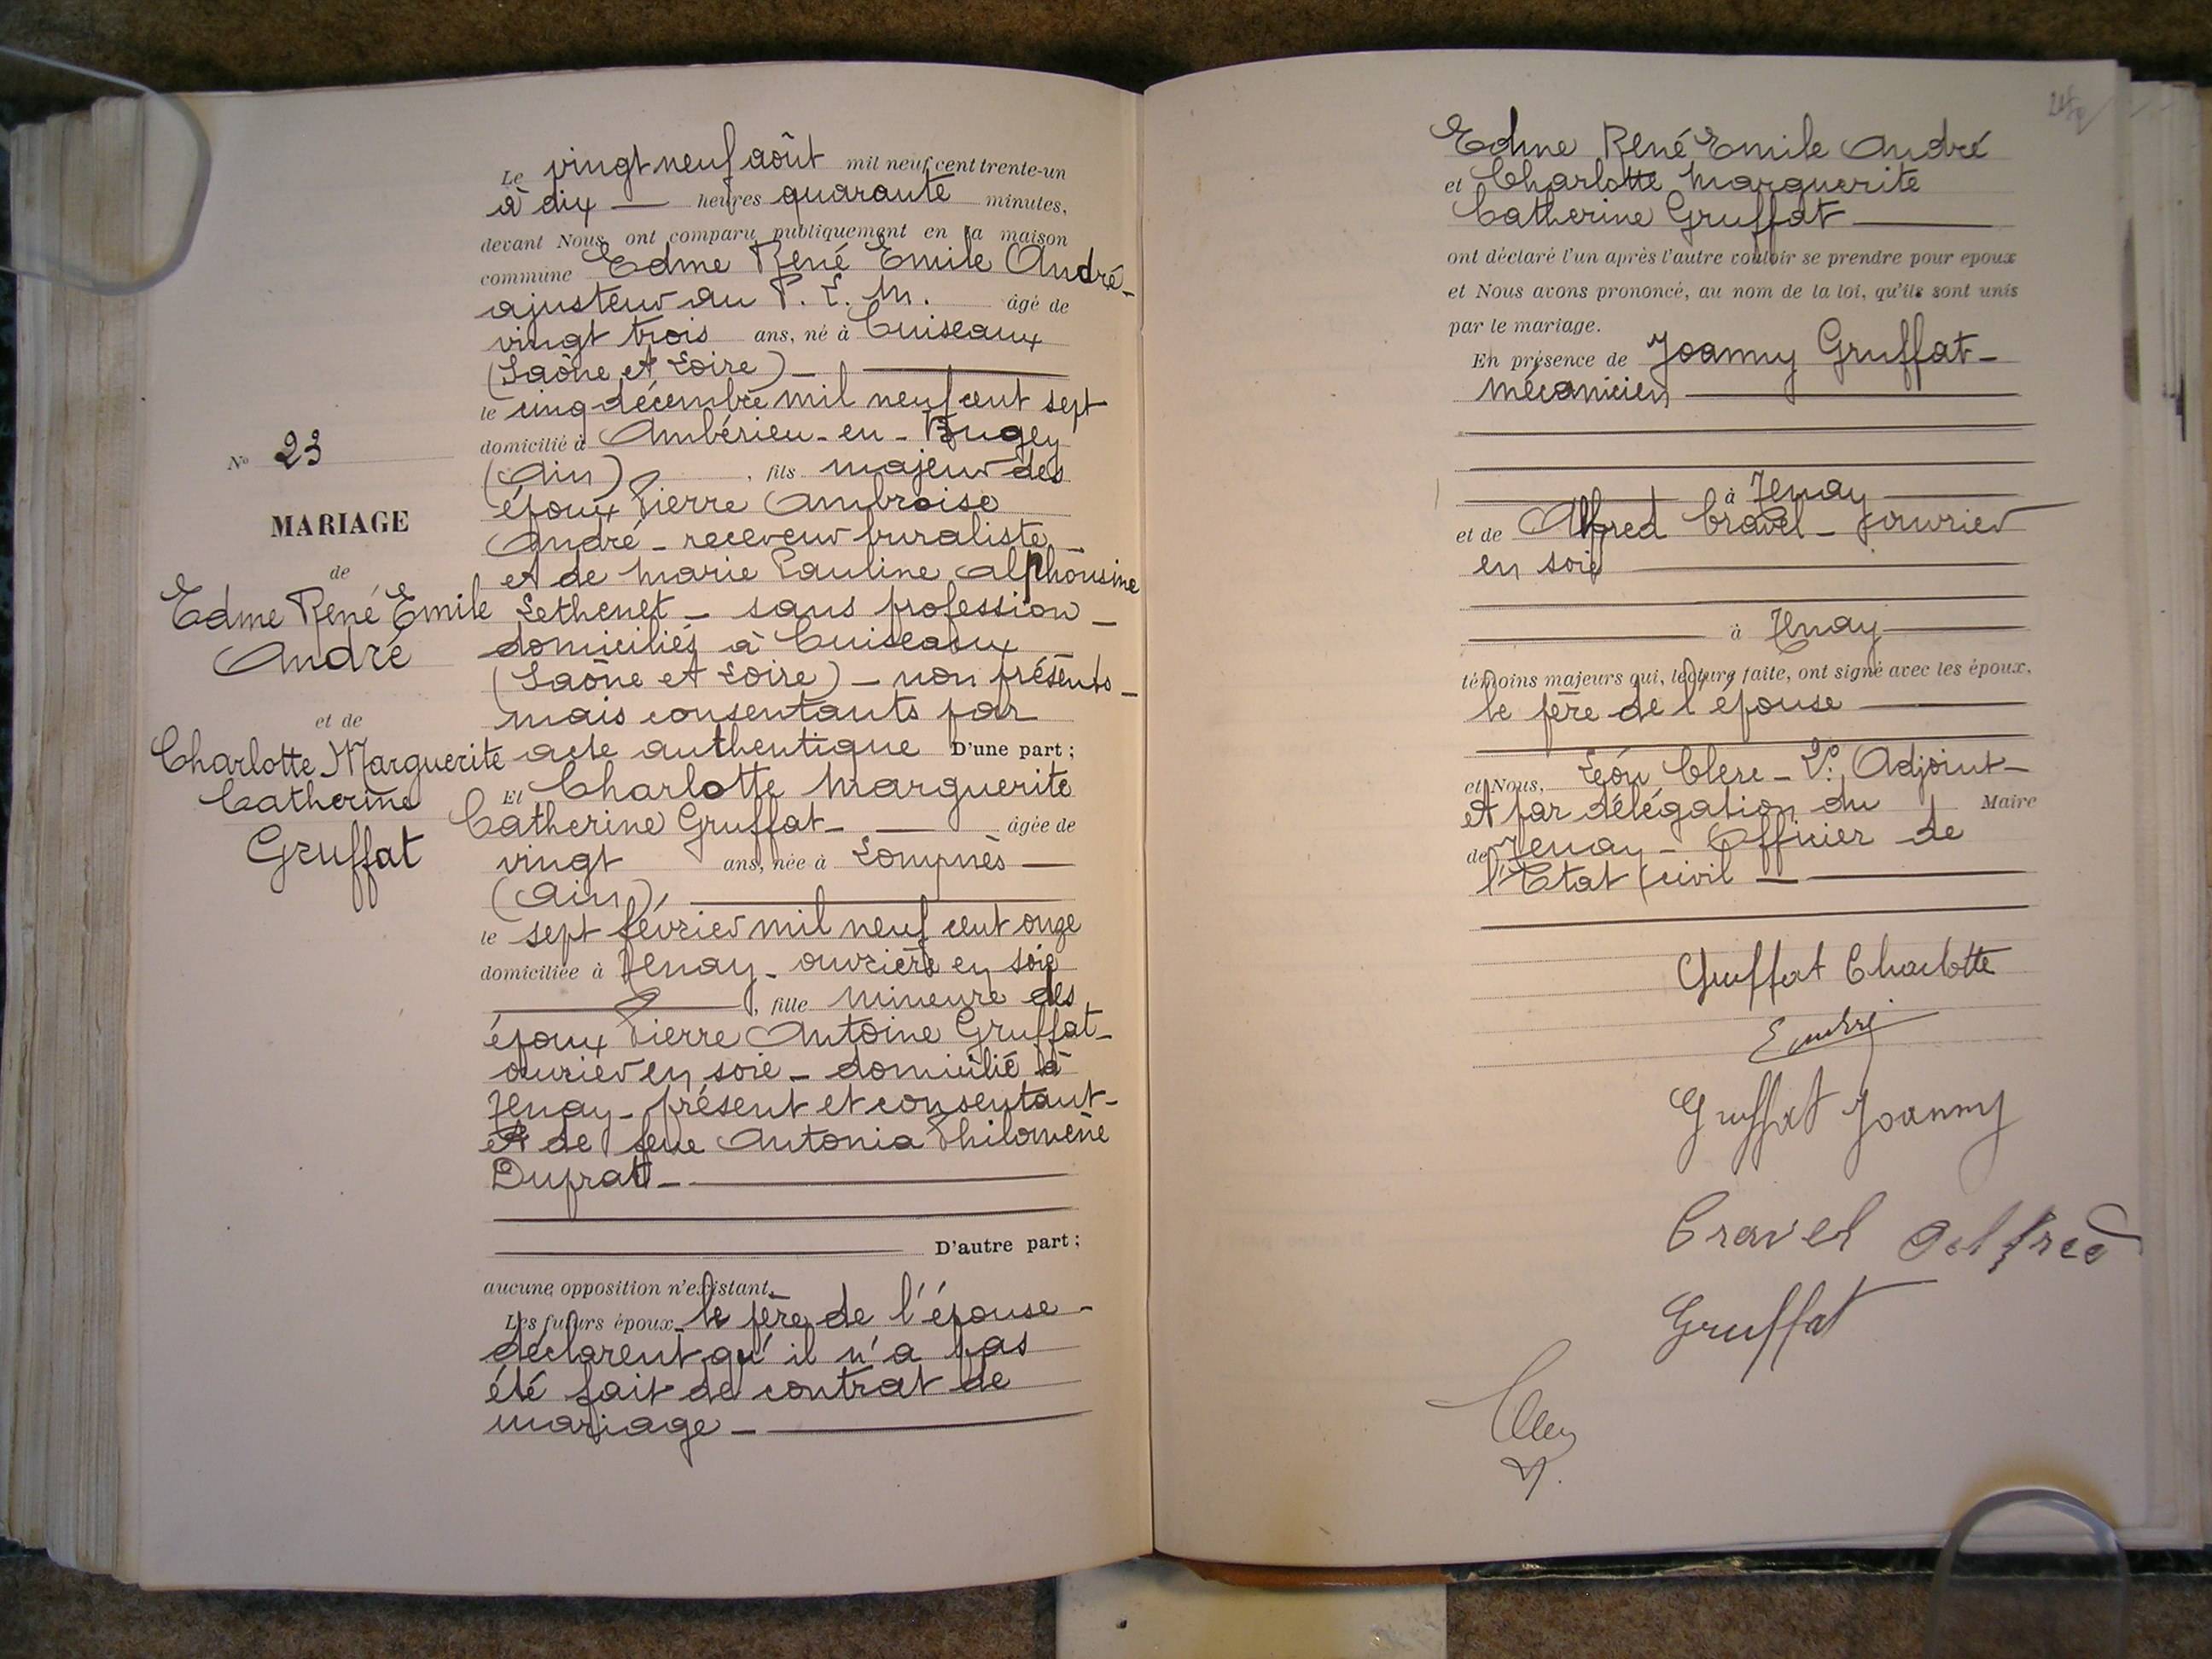 N° 23
MARIAGE
de
Edme René Emile
André
et de
Charlotte Marguerite
Catherine
Gruffat
Le vingt neuf août mil neuf cent trente-un
à dix — heures quarante minutes,
devant Nous ont comparu publiquement en la maison
commune Edme René Emile André-
ajusteur au P. L. M. âgé de
vingt trois ans, né à Cuiseaux
(Saône et Loire) —
le cinq décembre mil neuf cent sept
domicilié à Ambérieu-en-Bugey
(Ain) , fils majeur des
époux Pierre Ambroise
André - receveur buraliste -
et de Marie Pauline Alphonsine
Lethenet - sans profession -
domiciliés à Cuiseaux
(Saône et Loire) - non présents -
mais consentants par
acte authentique D'une part ;
Et Charlotte Marguerite
Catherine Gruffat - — âgée de
vingt ans, née à Lompnès —
(Ain) —
le sept février mil neuf cent onze
domiciliée à Tenay - ouvrière en soie
— , fille mineure des
époux Pierre Antoine Gruffat -
ouvrier en soie - domicilié à
Tenay - présent et consentant -
et de feue Antonia Philomène
Duprat - —
D'autre part ;
aucune opposition n'existant.
Les futurs époux - le père de l'épouse -
déclarent qu'il n'a pas
été fait de contrat de
mariage - —
Edme René Emile André
et Charlotte Marguerite
Catherine Gruffat —
ont déclaré l'un après l'autre vouloir se prendre pour époux
et Nous avons prononcé, au nom de la loi, qu'ils sont unis
par le mariage.
En présence de Joanny Gruffat -
mécanicien —
— à Tenay —
et de Alfred Cravel - ouvrier
en soie —
— à Tenay —
témoins majeurs qui, lecture faite, ont signé avec les époux,
le père de l'épouse —
et Nous, Léon Clerc - 2e Adjoint -
et par délégation du Maire
de Tenay - Officier de
l'Etat civil - —
Gruffat Charlotte
E André
Gruffat Joanny
Cravel Alfred
Gruffat
Clerc